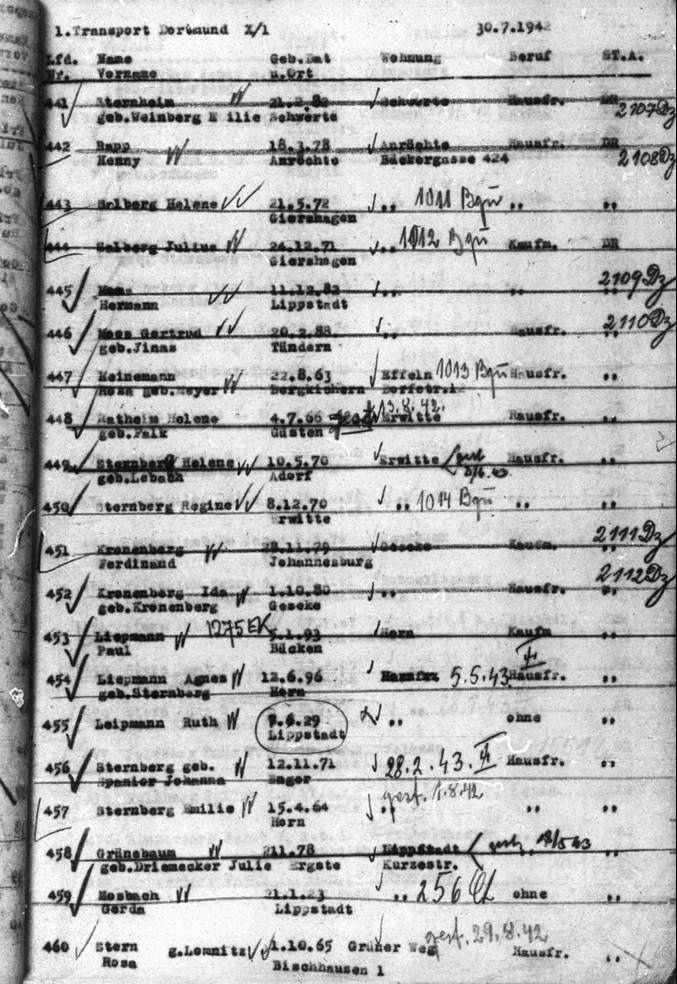 1.Transport Dortmund X/1 30.7.1942
Lfd. Name Geb.Dat Wohnung Beruf ST.A.
Nr. Vorname u.Ort
441 Sternheim 21.2.82 Schwerte Hausfr. DR 2107Dz
geb.Weinberg E ilie Schwerte
442 Rapp 18.3.78 Anröchte Hausfr. DR 2108Dz
Henny Anröchte Bäckergasse 424
443 Solberg Helene 21.5.72 ,, 1011 Bqu ,, ,,
Giershagen
444 Solberg Julius 24.12.71 ,, 1012 Bqu Kaufm. DR
Giershagen
445 Moos 11.12.82 ,, ,, 2109Dz
Hermann Lippstadt
446 Moos Gertrud 20.2.88 ,, Hausfr. 2110Dz
geb.Jinas Tündern
447 Heinemann 22.8.63 Effeln 1013 Bqu Hausfr. ,,
Rosa geb.Meyer Bergkichern Dorfstr.12
448 Ratheim Helene 4.7.66 gest. 13.8.42. Erwitte Hausfr. ,,
geb.Falk Gusten
449 Sternberg Helene 10.5.70 Erwitte gest Hausfr. ,,
geb.Lebach Adorf
450 Sternberg Regine 8.12.70 ,, 1014 Bqu ,, ,,
Erwitte
451 Kronenberg 28.11.79 Geseke Kaufm. 2111Dz
Ferdinand Johannesburg
452 Kronenberg Ida 1.10.80 ,, Hausfr. 2112Dz
geb.Kronenberg Geseke
453 Liepmann 1275EK 5.1.93 Horn Kaufm ,,
Paul Bücken
454 Liepmann Agnes 12.6.96 5.5.43 Hausfr. ,,
geb.Sternberg Horn
455 Leipmann Ruth 7.6.29 ,, ohne ,,
Lippstadt
456 Sternberg geb. 12.11.71 28.2.43. Hausfr. ,,
Spanier Johanna Enger
457 Sternberg Emilie 15.4.64 ,, gest. 1.8.42 ,, ,,
Horn
458 Grünebaum 211.78 Lippstadt gest. 18/5 43 ,,
geb.Driemacker Julie Ergste Kurzestr.
459 Mosbach 21.1.23 ,, 256 ohne ,,
Gerda Lippstadt
460 Stern g.Lomnitz 1.10.65 Grüner Weg gest. 29.8.42 Hausfr. ,,
Rosa Bischhausen 1